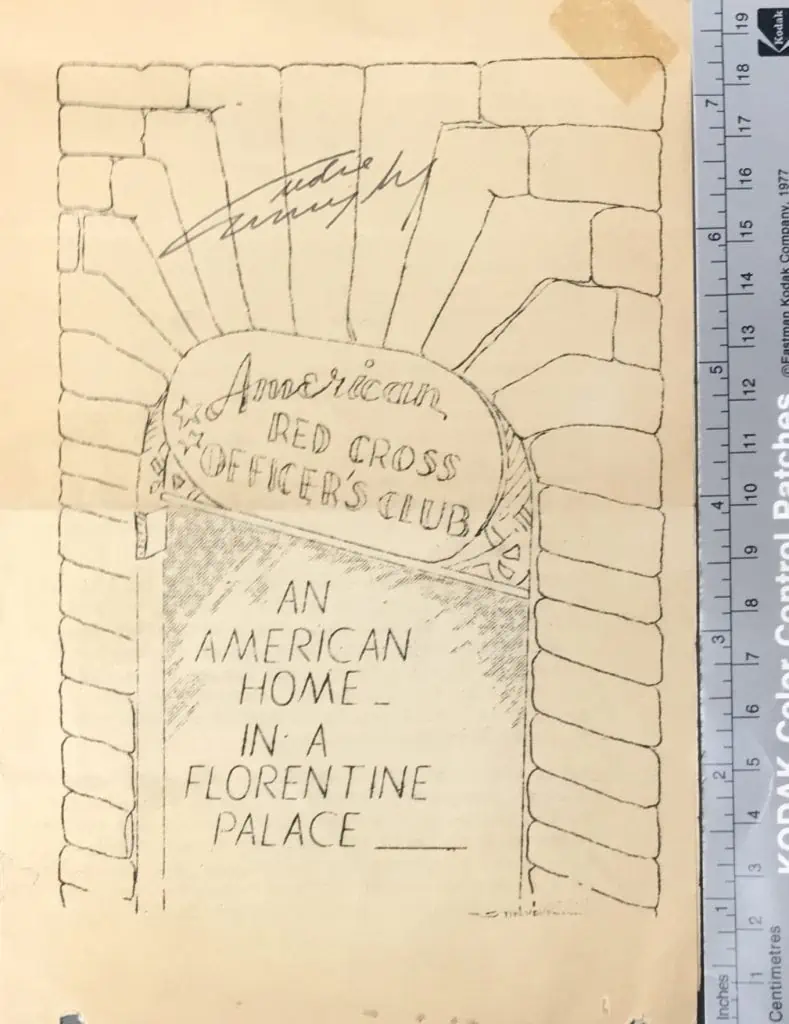 American
RED CROSS
OFFICER'S CLUB
AN
AMERICAN
HOME _
IN A
FLORENTINE
PALACE ____
Kodak
©Eastman Kodak Company, 1977
KODAK Color Control Patches
19
18
17
16
15
14
13
12
11
10
9
8
7
6
5
4
3
2
1
Centimetres
7
6
5
4
3
2
1
Inches